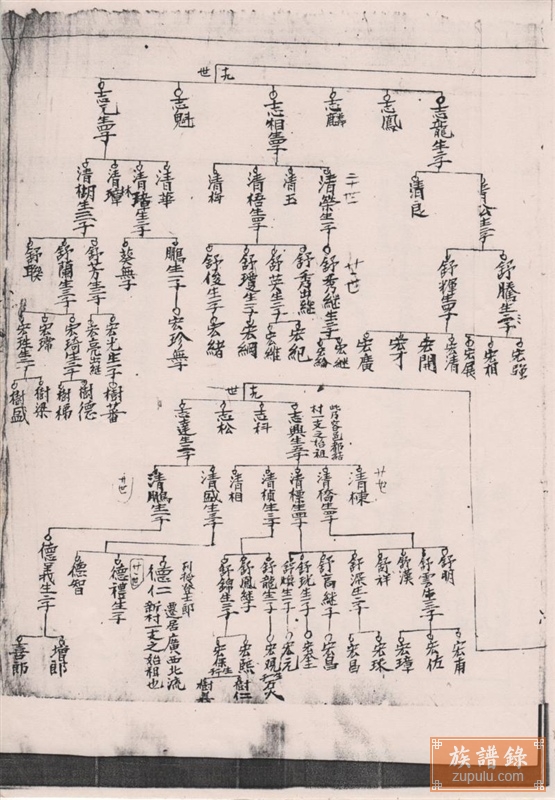 十九世
志龍生二子
志鳳
志麟
志相生四子
志魁
志元生四子
二十世
清公生二子
清良
清榮生二子
清五
清梧生四子
清梅
清華
清璋生二子
清瑚生三子
廿一世
舒騰生三子
舒輝生四子
舒秀繼生三子
舒秀出繼
舒英生二子
舒瓊生二子
舒俊生三子
鵬生一子
葵無子
舒芳生二子
舒蘭生三子
舒聯
宏強
宏相
宏展
宏清
宏開
宏才
宏廣
宏繼
宏紀
宏維
宏綱
宏緒
宏珍無子
宏光生二子
宏亮出繼
宏琦生二子
宏瑞
宏珠生二子
樹蕃
樹德
樹梯
樹梁
樹盛
十九世
志興生五子
志科
志松
志達生三子
村一支之始祖
廿世
清棟
清喬生四子
清標生四子
清楨生三子
清相
清國生三子
清鵬生三子
舒明
舒雲生三子
舒漢
舒祥
舒深生二子
舒高繼子
舒玳生一子
舒煥生一子
舒龍生一子
舒鳳繼子
舒錦生三子
例授登士郎
德仁
遷居廣西北流
新村一支之始祖也
廿一世
德禮生子
德智
德義生二子
宏甫
宏佐
宏璋
宏珠
宏昌
宏昌
宏奎
宏元
宏現
宏熙
宏保
樹仁
增郎
喜郎
族譜錄
zupulu.com